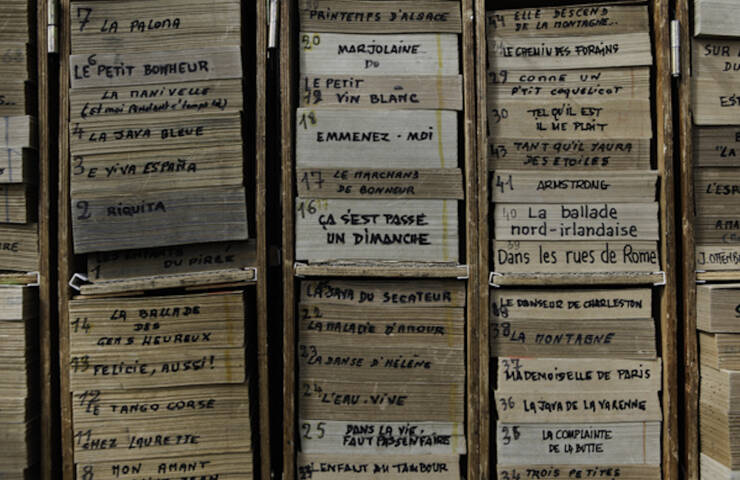 7 LA PALOMA
6
LE PETIT BONHEUR
LA MANIVELLE
(et moi pendant c'temps là)
4 LA JAVA BLEUE
3 E VIVA ESPAÑA
2 RIQUITA
1 LES ENFANTS DU PIRÉE
14 LA BALLADE
DES
GENS HEUREUX
13 FELICIE, AUSSI!
12 LE TANGO CORSE
11 CHEZ LAURETTE
8 MON AMANT
PRINTEMPS D'ALSACE
20 MARJOLAINE
DU
LE PETIT
19 VIN BLANC
18
EMMENEZ-MOI
17 LE MARCHAND
DE BONHEUR
16
ÇA S'EST PASSÉ
UN DIMANCHE
LA JAVA DU SECATEUR
22
LA MALADIE D'AMOUR
23
LA DANSE D'HÉLÈNE
24
L'EAU-VIVE
25 DANS LA VIE,
FAUT PAS S'EN FAIRE
L'ENFANT AU TAMBOUR
44 ELLE DESCEND
DE LA MONTAGNE..
LE CHEMIN DES FORAINS
29 COMME UN
P'TIT COQUELICOT
30 TEL QU'IL EST
IL ME PLAIT
43 TANT QU'IL Y AURA
DES ETOILES
41 ARMSTRONG
40 La ballade
nord-irlandaise
39
Dans les rues de Rome
LE DANSEUR DE CHARLESTON
38 LA MONTAGNE
37
MADEMOISELLE DE PARIS
36 LA JAVA DE LA VARENNE
35 LA COMPLAINTE
DE LA BUTTE
34 TROIS PETITES
SUR
DU
"LA
L'ESP
J. OFFENB